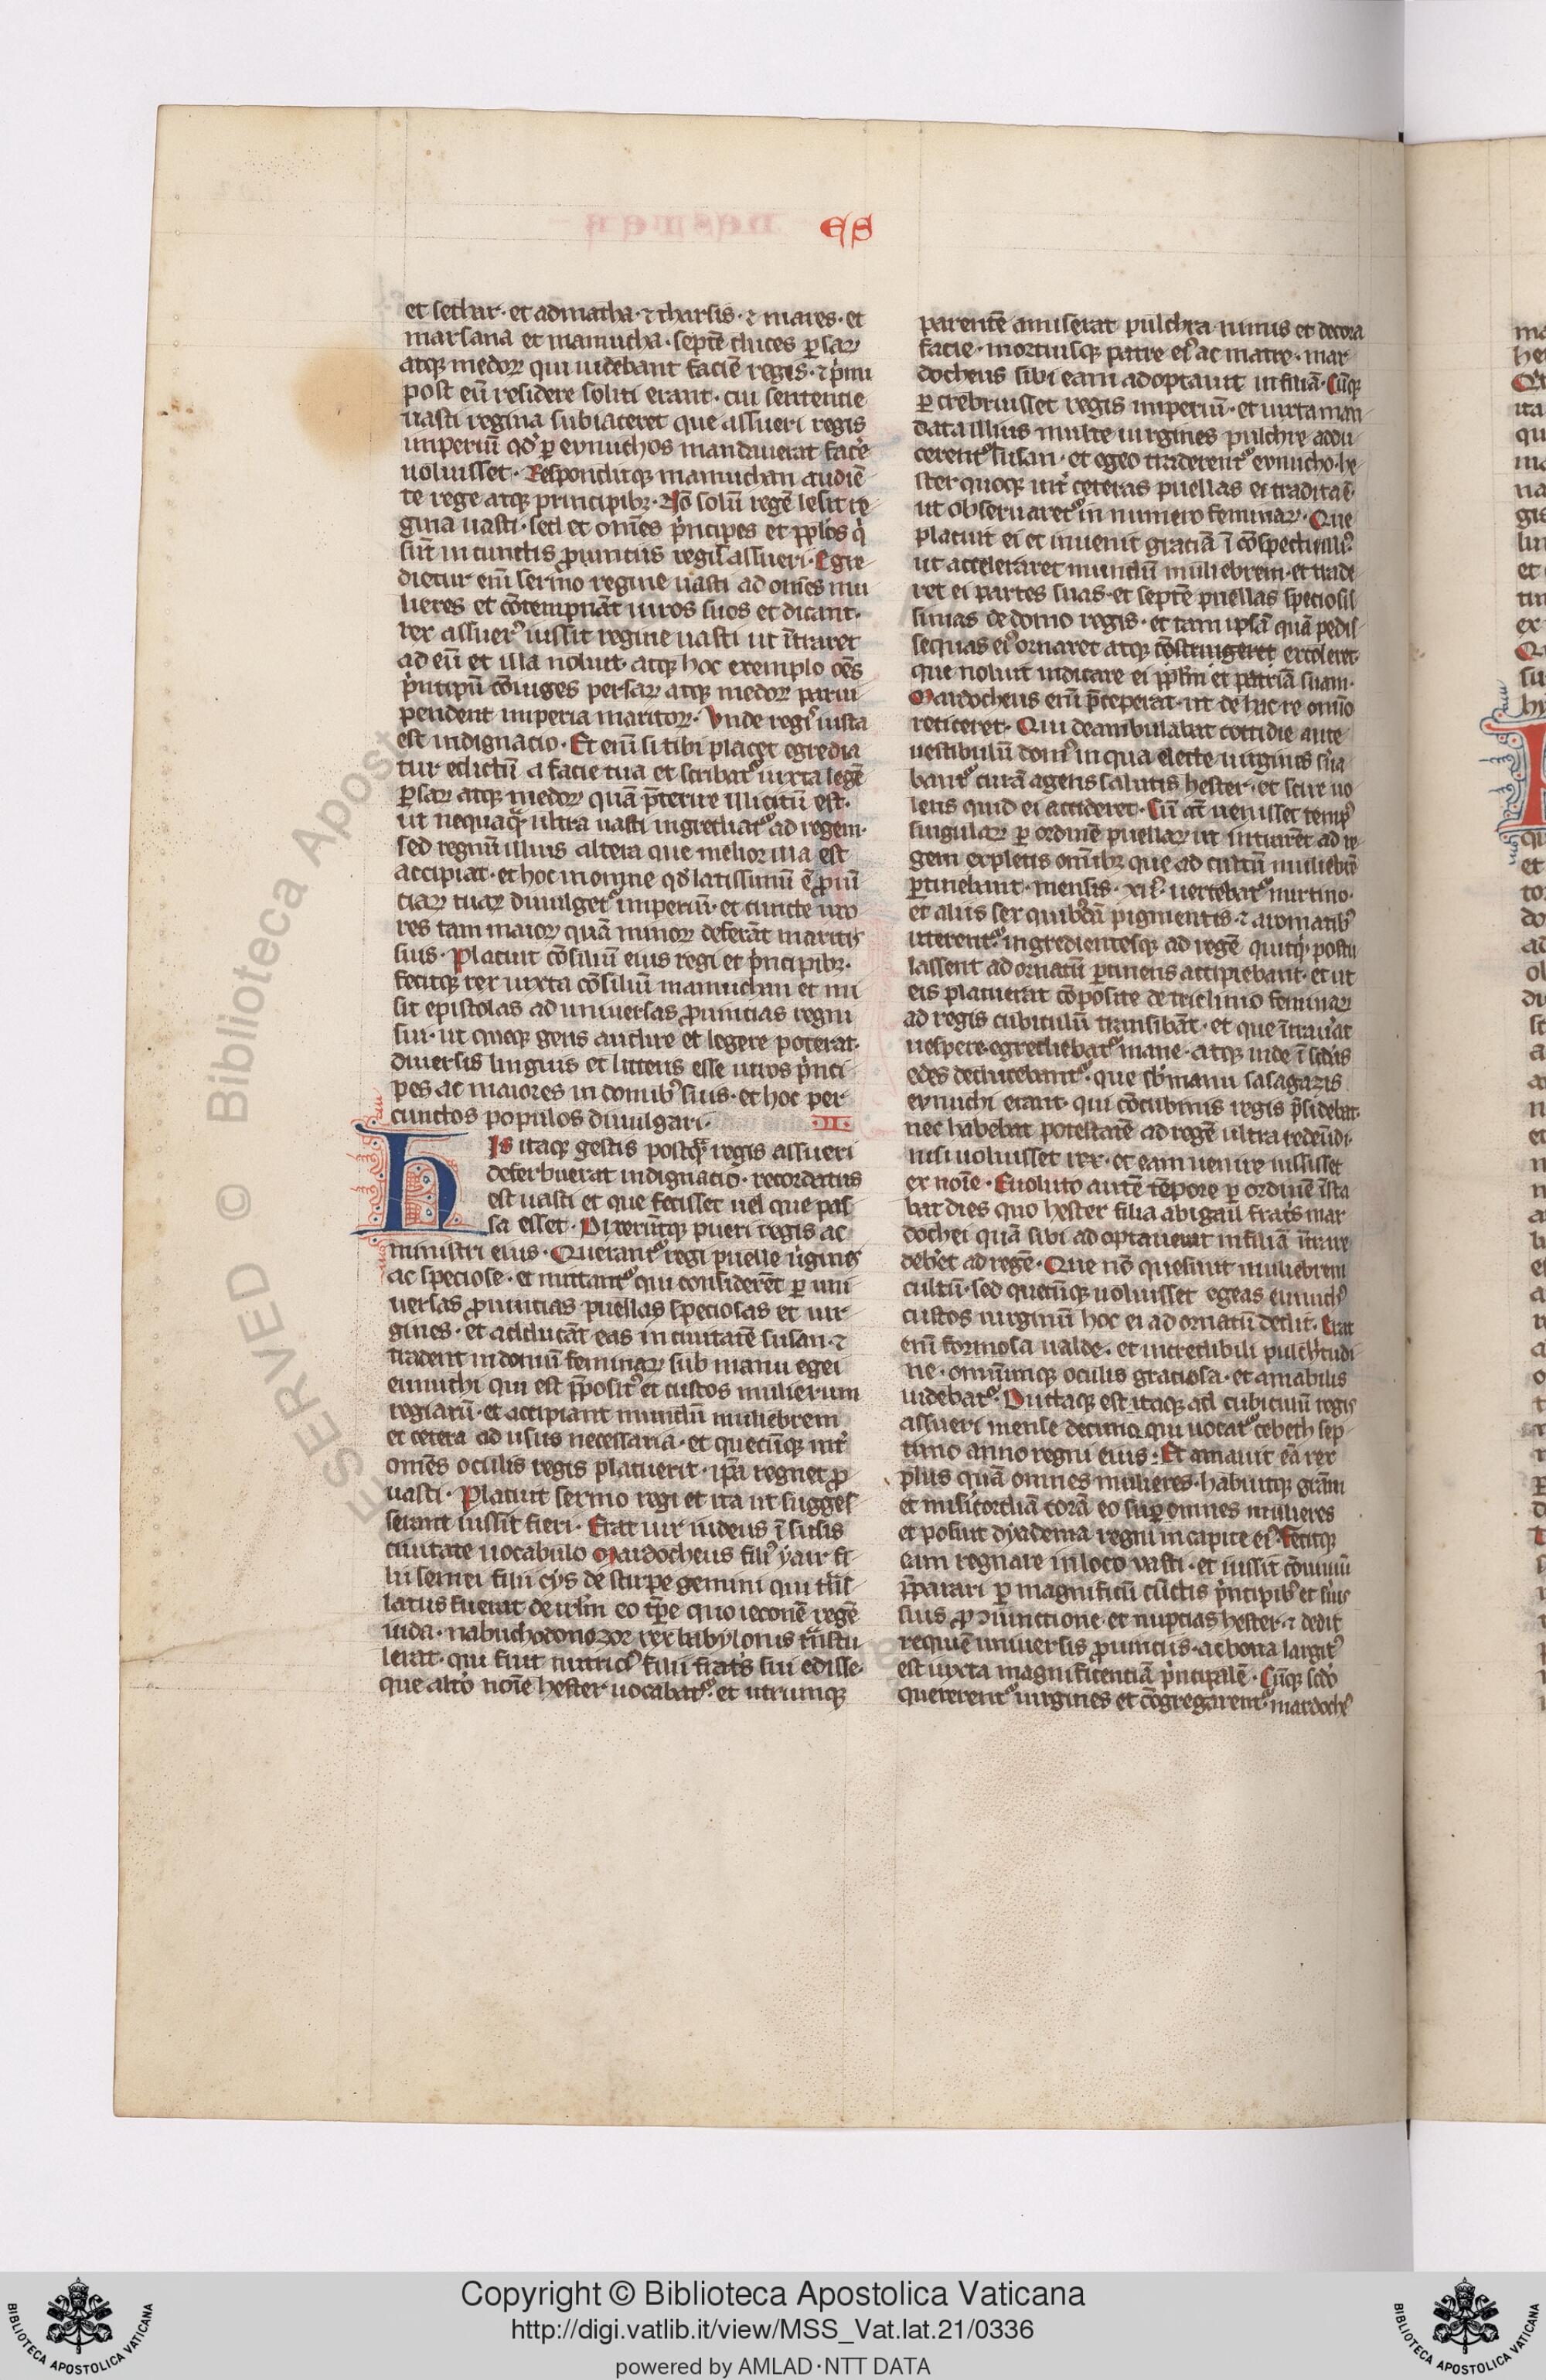 ES
et sethar · et admatha · ⁊ tharsis · ⁊ mares · et
marsana et mamucha · septē duces ꝑsaꝝ
atqꝫ medoꝝ qui uidebant faciē regis · ⁊ p̍mi
post eū residere soliti erant · cui sententie
uasti regina subiaceret que assueri regis
imperiū qđ ꝑ eunuchos mandauerat facē
noluisset · Responditqꝫ mamuchan audiē
te rege atqꝫ principibꝫ · Nō solū regē lesit re
gina uasti · sed et om̄es p̍ncipes et pp̄los q̍
sūt in cunctis ꝓuinciis regis assueri · Egre
dietur enī sermo regine uasti ad om̄es mu
lieres et cōtempnāt uiros suos et dicant ·
rex assuerꝰ iussit regine uasti ut ītraret
ad eū et illa noluit · atqꝫ hoc exemplo oēs
p̍ncipū cōiuges persaꝝ atqꝫ medoꝝ parui
pendent imperia maritoꝝ · Vnde regis iusta
est indignacio · Et enī si tibi placet egredia
tur edictū a facie tua et scribatᷣ iuxta legē
ꝑsaꝝ atqꝫ medoꝝ quā p̄terire illicitū est ·
ut nequaqᷓ ultra uasti ingrediatᷣ ad regem ·
sed regnū illius altera que melior illa est
accipiat · et hoc in omne qđ latissimū ē ꝓuī
ciaꝝ tuaꝝ diuulgetᷣ imperiū · et cuncte uxo
res tam maioꝝ quā minoꝝ deferāt maritis
suis · Placuit cōsiliū eius regi et p̍ncipibꝫ ·
fecitqꝫ rex iuxta cōsiliū mamuchan et mi
sit epistolas ad uniuersas ꝓuincias regni
sui · ut queqꝫ gens audire et legere poterat ·
diuersis linguis et litteris esse uiros p̍nci
pes ac maiores in domibꝰ suis · et hoc per
cunctos populos diuulgari · II ·
His itaqꝫ gestis postqᷓ regis assueri
deferbuerat indignacio · recordatus
est uasti et que fecisset uel que pas
sa esset · Dixerūtqꝫ pueri regis ac
ministri eius · Querantᷣ regi puelle u̍gines
ac speciose · et mittantᷣ qui considerēt ꝑ uni
uersas ꝓuincias puellas speciosas et uir
gines · et adducāt eas in ciuitatē susan · ⁊
tradent in domū feminaꝝ sub manu egei
eunuchi qui est p̄positꝰ et custos mulierum
regiarū · et accipiant mundū muliebrem
et cetera ad usus necessaria · et quecūqꝫ int̍
om̄es oculis regis placuerit · ip̄a regnet ꝓ
uasti · Placuit sermo regi et ita ut sugges
serant iussit fieri · Erat uir iudeus ī susis
ciuitate uocabulo Mardocheus filiꝰ yair fi
lii semei filii cys de stirpe gemini qui tᷓns
latus fuerat de irl̄m eo tp̄e quo ieconē regē
iuda · nabuchodonozor rex babylonis tᷓnstu
lerat · qui fuit nutriciꝰ filii frat̍s sui edisse ·
que alt̍o noīe hester uocabatᷣ · et utrumqꝫ
parentē amiserat pulchra nimis et decora
facie · mortuisqꝫ patre eiꝰ ac matre · mar
docheus sibi eam adoptauit in filiā · Cūqꝫ
ꝑcrebruisset regis imperiū · et iuxta man
data illius multe uirgines pulchre addu
cerentᷣ susan · et egeo traderentᷣ eunucho · he
ster quoqꝫ int̍ ceteras puellas ei tradita ē ·
ut obseruaretᷣ in numero feminaꝝ · Que
placuit ei et inuenit graciā ī cōspectu illiꝰ
ut acceleraret mundū muliebrem · et trade
ret ei partes suas · et septē puellas speciosis
simas de domo regis · et tam ipsā quā pedis
sequas eiꝰ ornaret atqꝫ cōstringeret excoleret ·
que noluit indicare ei pp̄lm et patriā suam ·
Mardocheus enī p̄ceperat · ut de hac re omīo
reticeret · Qui deambulabat cottidie ante
uestibulū domꝰ in qua electe uirgines s̍ua
bantᷣ curā agens salutis hester · et scire uo
lens quid ei accideret · Cū at̄ uenisset tempꝰ
singulaꝝ ꝑ ordinē puellaꝝ ut intrarēt ad re
gem expletis om̄ibꝫ que ad cultū muliebrē
ꝑtinebant · mensis · xii · uertebatᷣ · mirtino ·
et aliis sex quibꝰdā pigmentis · ⁊ aromatibꝰ
uterentᷣ ingredientesqꝫ ad regē quicq̍d postu
lassent ad ornatū ꝑtinens accipiebant · et ut
eis placuerat cōposite de triclinio feminaꝝ
ad regis cubiculū transibāt · et que ītrau̍at
uespere · egrediebatᷣ mane · atqꝫ inde ī sc̄das
edes deducebantᷣ · que sb̍ manu sasagazis
eunuchi erant · qui cōcubinis regis p̄sidebat ·
nec habebat potestatē ad regē ultra redeūdi ·
nisi uoluisset rex · et eam uenire iussisset
ex noīe · Euoluto autē tēpore ꝑ ordinē īsta
bat dies quo hester filia abigail frat̍s mar
dochei quā sibi adoptauerat in filiā ītrare
deb̍et ad regē · Que nō quesiuit muliebrem
cultū · sed quecūqꝫ uoluisset egeas eunuchꝰ
custos uirginū hoc ei ad ornatū dedit · Erat
enī formosa ualde · et incredibili pulchritudi
ne · omniumqꝫ oculis graciosa · et amabilis
uidebatᷣ · Ductaqꝫ est itaqꝫ ad cubiculū regis
assueri mense decimo qui uocatᷣ tebeth sep
timo anno regni eius : Et amauit eā rex
plus quā omnes mulieres · habuitqꝫ grām
et mis̍icordiā corā eo suꝑ omnes mulieres
et posuit dyadema regni in capite eiꝰ · Fecitqꝫ
eam regnare in loco vasti · et iussit cōuiuiū
p̄parari ꝑ magnificū cūctis p̍ncipibꝰ et s̍uis
suis ꝓ ↄiunctione et nuptias hester · ⁊ dedit
requiē uniuersis ꝓuinciis · ac bona largitꝰ
est iuxta magnificentiā p̍ncipalē · Cūqꝫ sc̄do
quererentᷣ uirgines et cōgregarentᷣ mardochꝰ
Copyright © Biblioteca Apostolica Vaticana
http://digi.vatlib.it/view/MSS_Vat.lat.21/0336
powered by AMLAD·NTT DATA
BIBLIOTECA APOSTOLICA VATICANA
BIBLIOTECA APOSTOLICA VATICANA